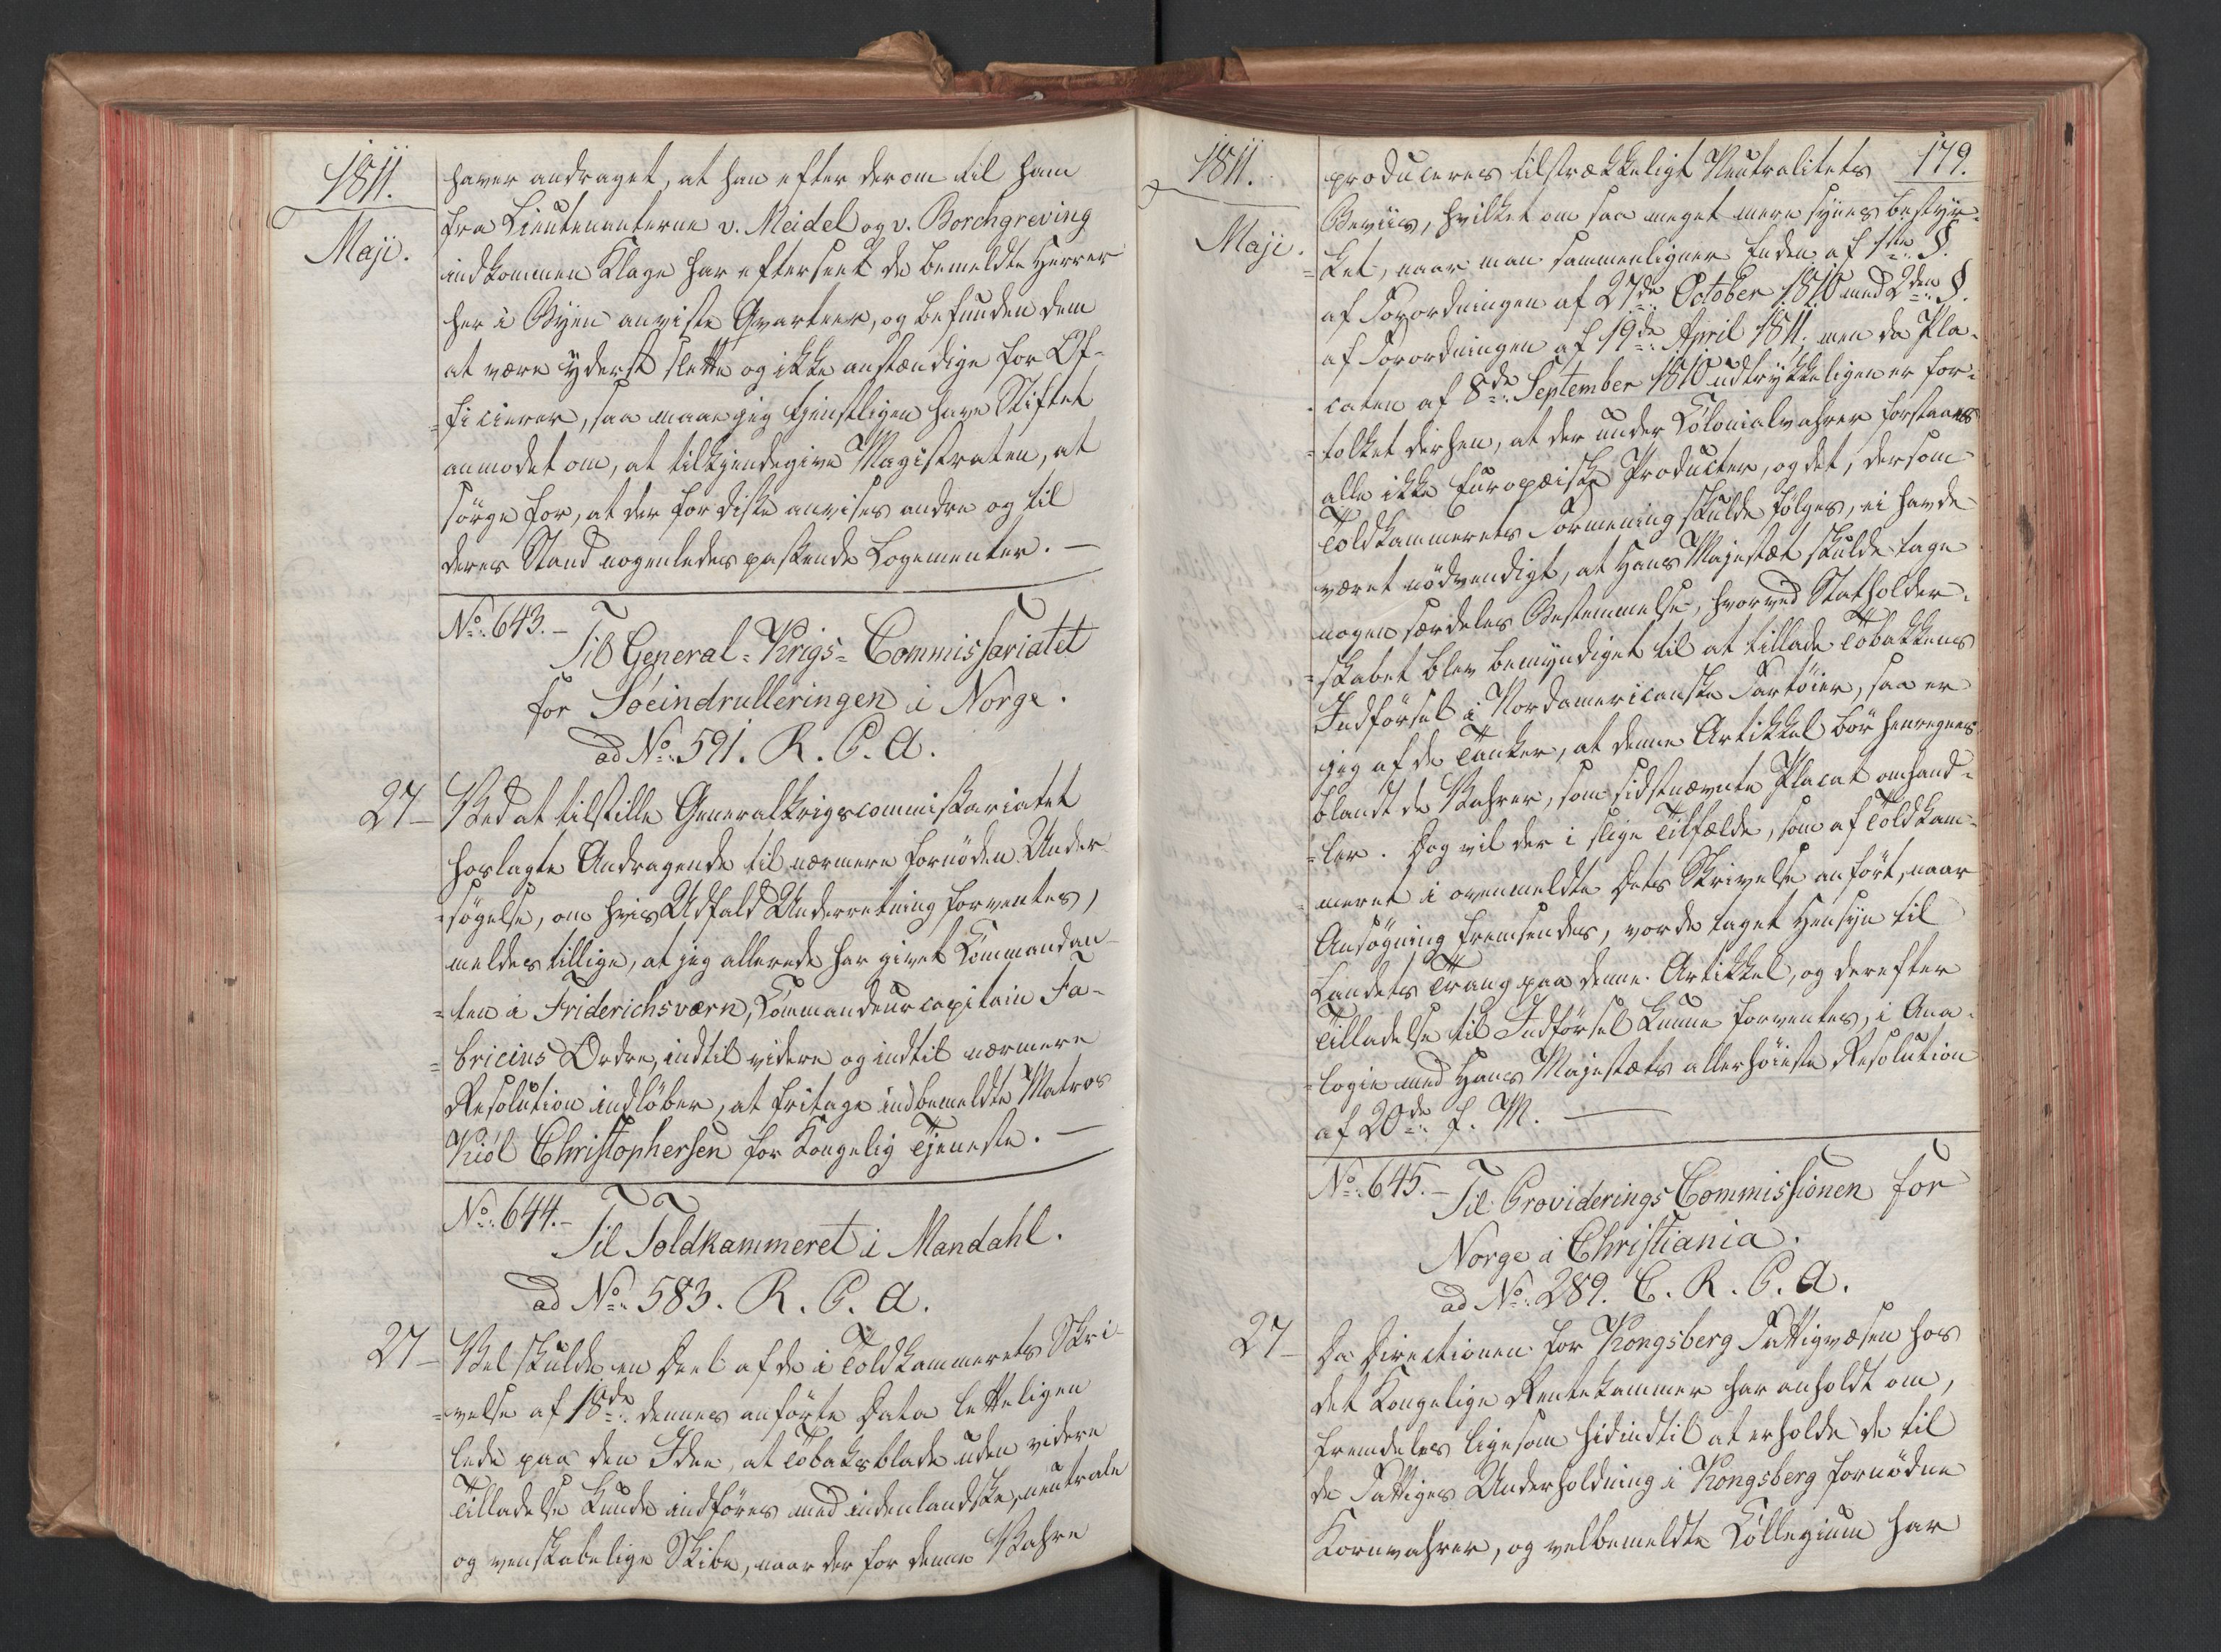 1811.
Maji.
haver andraget, at han efter derom til ham
fra Lieutenanterne v. Meidel og v. Borchgreving
indkommen Klage har efterseet de bemeldte Herrer
her i Byen anviste Qvarteer, og befunden dem
at være yderst slette og ikke anstændige for Of-
=ficierer, saa maae jeg tjenstligen have Stiftet
anmodet om, at tilkjendegive Magistraten, at
sörge for, at der for diske anvises andre og til
deres Stand nogenledes passende Logementer. —
No. 643. –
Til General-Krigs-Commissariatet
for Söeindrulleringen i Norge.
ad No. 591. R. P. A.
27 – Ved at tilstille Generalkrigscommissariatet
hoslagte Andragende til nærmere fornöden Under
=sögelse, om hvis Udfald Underretning forventes,
meldes tillige, at jeg allerede har givet Commandan-
=ten i Friderichsværn, Commandeurcapitain Fa-
=bricius Ordre, indtil videre og indtil nærmere
Resolution indlöber, at fritage indbemeldte Matros
Kiöl Christophersen for Kongelig Tjeneste. —
No. 644. –
Til Toldkammeret i Mandahl.
ad No. 583. R. P. A.
27 – Vel skulde en Deel af de i Toldkammerets Skri-
=velse af 18de dennes anförte Data letteligen
lede paa den Idee, at Tobaksblade uden videre
Tilladelse kunde indföres med indenlandske, neutrale
og venskabelige Skibe, naar der for denne Vahre
1811.
Maji.
179.
produceres tilstrækkeligt Neutralitets
Beviis, hvilket om saa meget mere synes bestyr-
=ket, naar man sammenligner Enden af 1ste §.
af Forordningen af 27de October 1810 med 2den §.
af Forordningen af 19de April 1811; men da Pla-
caten af 8de September 1810 udtrykkeligen er for-
=tolket derhen, at der under Colonialvahrer forstaaes
alle ikke Europæiske Producter, og det, dersom
Toldkammerets Formening skulde fölges, ei havde
været nödvendigt, at Hans Majestæt skulde tage
nogen særdeles Bestemmelse, hvorved Statholder-
=skabet blev bemyndiget til at tillade Tobakkens
Indförsel i Nordamericanske Fartöier, saa er
jeg af de Tanker, at denne Artikkel bör henregnes
blandt de Vahrer, som sidstnævnte Placat omhand-
=ler. Dog vil der i slige Tilfælde, som af Toldkam-
=meret i ovenmeldte dets Skrivelse anfört, naar
Ansögning fremsendes, vorde taget Hensyn til
Landets Trang paa denne Artikkel, og derefter
Tilladelse til Indförsel kunne forventes, i Ana-
=logie med Hans Majestæts allerhöieste Resolution
af 20de f. M. —
No. 645. –
Til Providerings Commissionen for
Norge i Christiania.
ad No. 289. C. R. P. A.
27 – Da Directionen for Kongsberg Fattigvæsen hos
det Kongelige Rentekammer har anholdt om,
fremdeles ligesom hidindtil at erholde de til
de Fattiges Underholdning i Kongsberg fornödne
Kornvahrer, og velbemeldte Collegium har